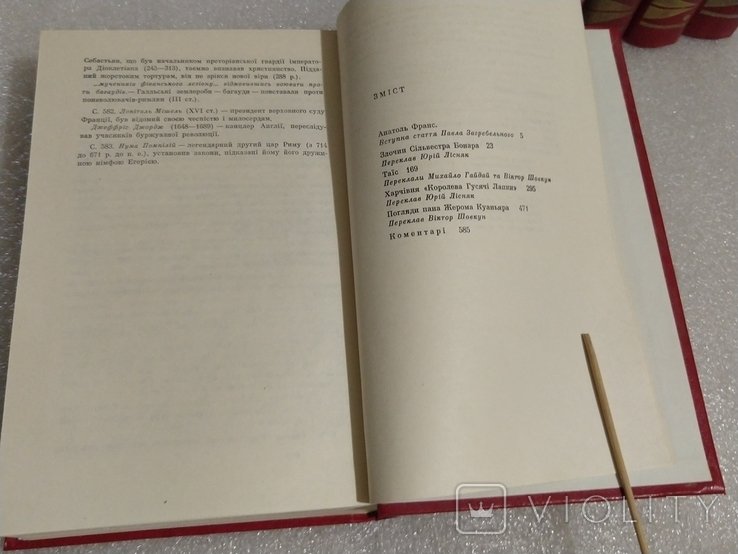 Себастьян, що був начальником преторіанської гвардії імперато-
ра Діоклетіана (245—313), таємно визнавав християнство. Підда-
ний жорстоким тортурам, він не зрікся нової віри (288 р.).
...мучеників фіванського легіону... відмовившись воювати про-
ти багаудів.— Галльські землероби — багауди — повставали проти
поневолювачів-римлян (III ст.).
С. 582. Лопіталь Мішель (XVI ст.) — президент верховного суду
Франції, був відомий своєю чесністю і милосердям.
Джеффріс Джордж (1648—1689) — канцлер Англії, пересліду-
вав учасників буржуазної революції.
С. 583. Нума Помпілій — легендарний другий цар Риму (з 714
до 671 р. до н. е.), установив закони, підказані йому його дружи-
ною німфою Егерією.
ЗМІСТ
Анатоль Франс.
Вступна стаття Павла Загребельного 5
Злочин Сільвестра Бонара 23
Переклав Юрій Лісняк
Таїс 169
Переклали Михайло Гайдай та Віктор Шовкун
Харчівня «Королева Гусячі Лапки» 295
Переклав Юрій Лісняк
Погляди пана Жерома Куаньяра 471
Переклав Віктор Шовкун
Коментарі 585
VIOLITY